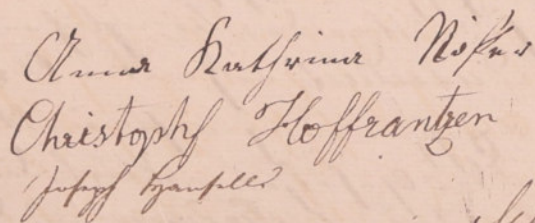 Anna Kathrina Nösser
Christoph Hoffrantzen
Joseph